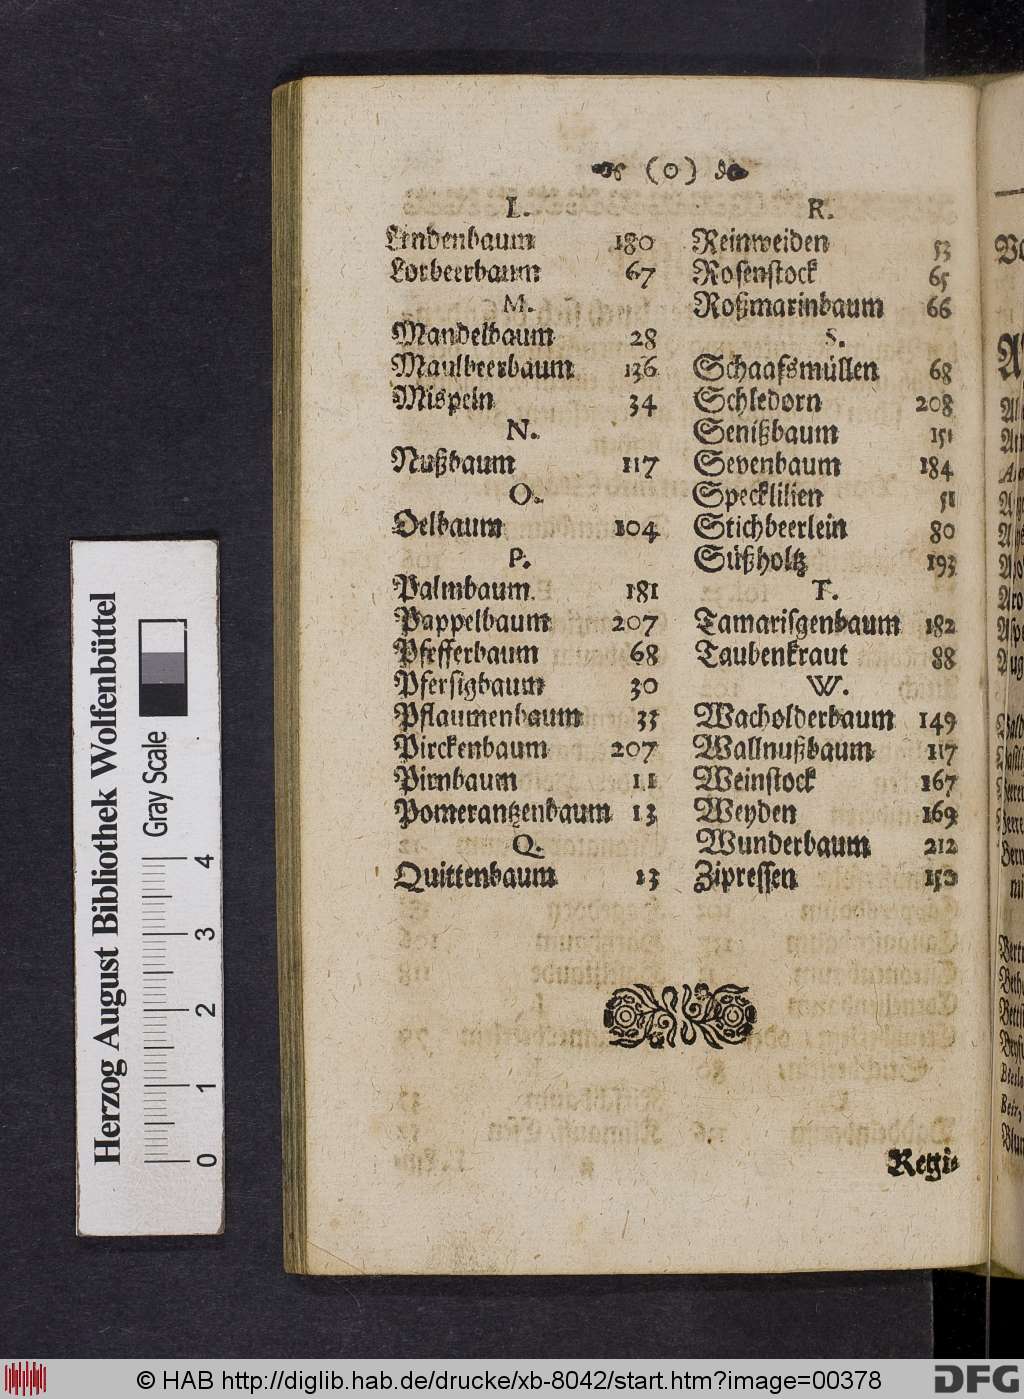 (0)
L.
Lindenbaum 180
Lorbeerbaum 67
M.
Mandelbaum 28
Maulbeerbaum 136
Mispeln 34
N.
Nußbaum 117
O.
Oelbaum 104
P.
Palmbaum 181
Pappelbaum 207
Pfefferbaum 68
Pfersigbaum 30
Pflaumenbaum 33
Pirckenbaum 207
Pirnbaum 11
Pomerantzenbaum 13
Q.
Quittenbaum 13
R.
Reinweiden 53
Rosenstock 65
Roßmarinbaum 66
S.
Schaafsmüllen 68
Schledorn 208
Senißbaum 151
Sevenbaum 184
Specklilien 51
Stichbeerlein 80
Süßholtz 193
T.
Tamarisgenbaum 182
Taubenkraut 88
W.
Wacholderbaum 149
Wallnußbaum 117
Weinstock 167
Weyden 169
Wunderbaum 212
Zipressen 150
Regi-
Herzog August Bibliothek Wolfenbüttel
Gray Scale
0 1 2 3 4
© HAB http://diglib.hab.de/drucke/xb-8042/start.htm?image=00378
DFG